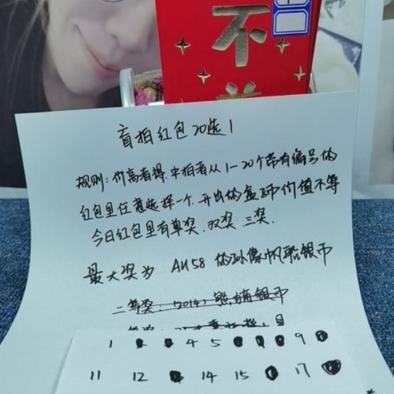 不
盲拍红包20选1
规则:价高者得.中拍者从1—20个带有编号的
红包里任意选择一个.开出的盒子币价值不等
今日红包里有单奖.双奖.三奖.
最大奖为 AU58 的孙像帆船银币
二等奖:2014 熊猫银币
1 4 5 9
11 12 14 15 17